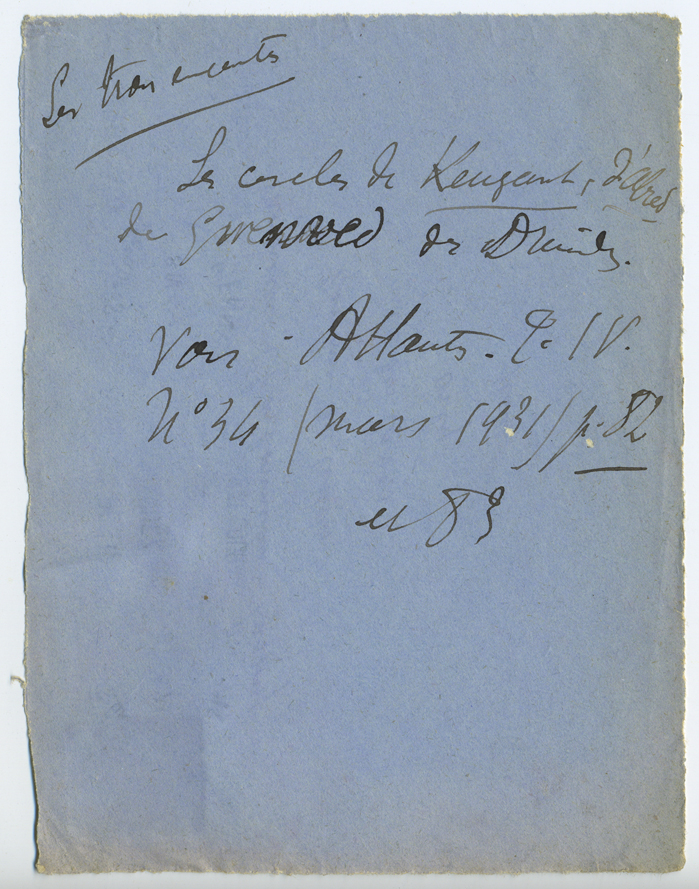 Les trois enceintes
Les cercles de Keugant, d'abred
de Gwenved des Druides.
Voir - Atlantis. T. IV.
N° 34 (mars 1931) p. 82
et 83